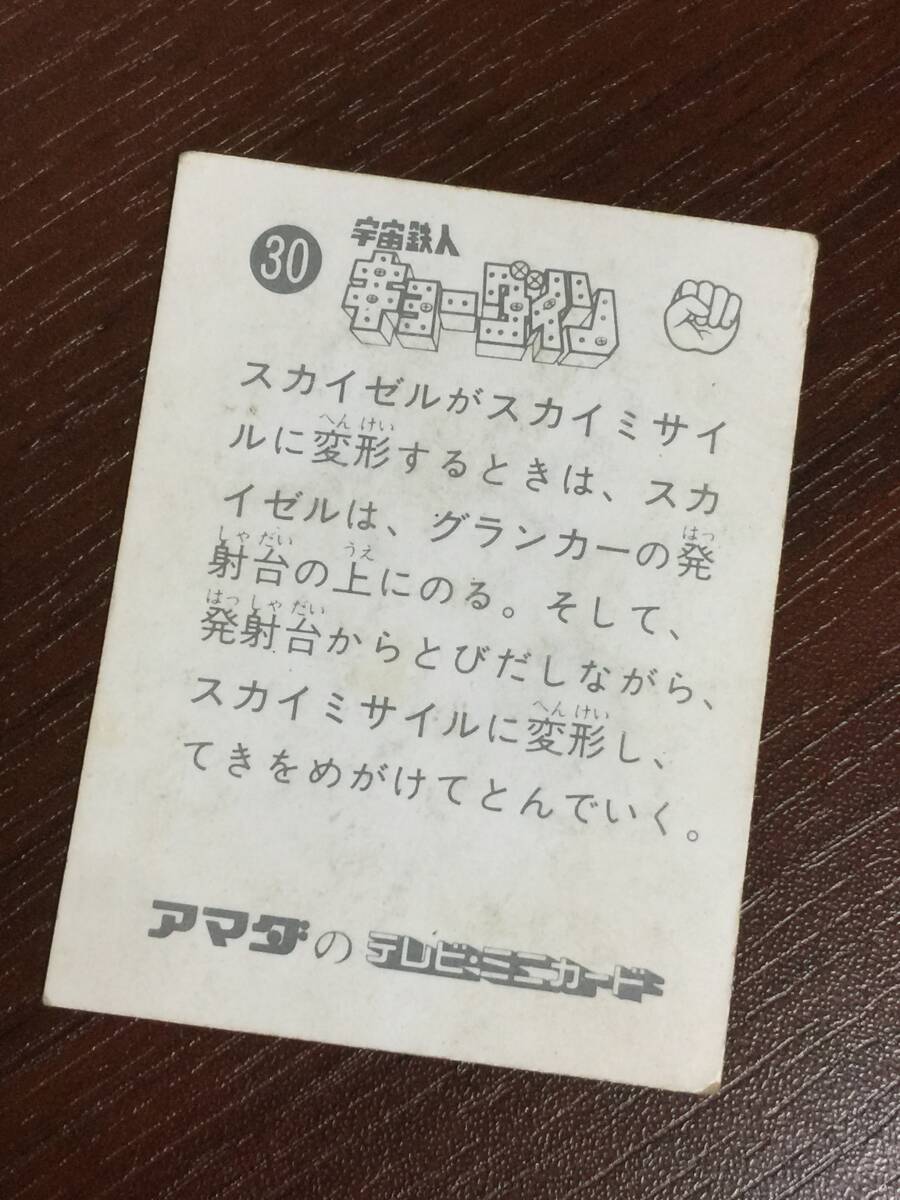 30
宇宙鉄人
キョーダイン
スカイゼルがスカイミサイ
へん けい
ルに変形するときは、スカ
はっ
イゼルは、グランカーの発
しゃ だい うえ
射台の上にのる。そして、
はっ しゃ だい
発射台からとびだしながら、
へん けい
スカイミサイルに変形し、
てきをめがけてとんでいく。
アマダの テレビ・ミニカード